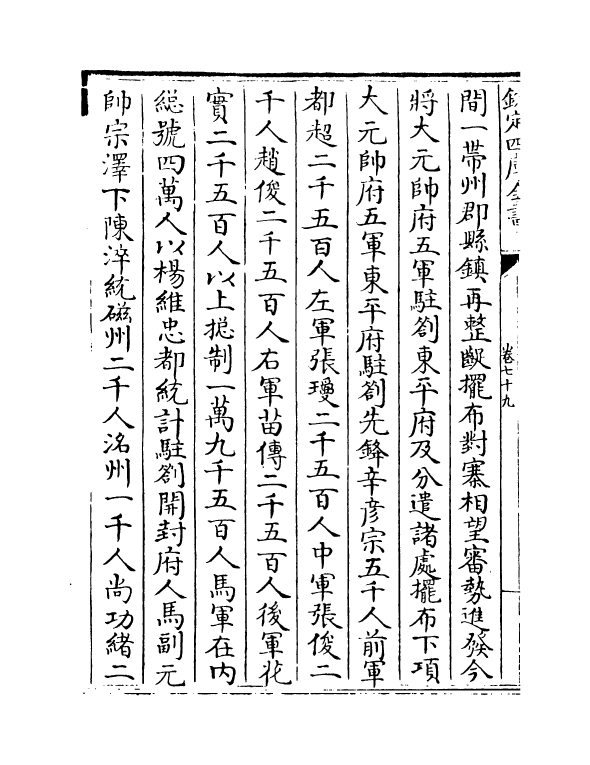 欽定四庫全書
卷七十九
間一帶州郡縣鎮再整龊擺布對寨相望審勢進發今
將大元帥府五軍駐劄東平府及分遣諸處擺布下項
大元帥府五軍東平府駐劄先鋒辛彦宗五千人前軍
都超二千五百人左軍張瓊二千五百人中軍張俊二
千人趙俊二千五百人右軍苗傅二千五百人後軍范
實二千五百人以上揔制一萬九千五百人馬軍在内
總號四萬人以楊維忠都統計駐劄開封府人馬副元
帥宗澤下陳淬統磁州二千人洺州一千人尚功緒二